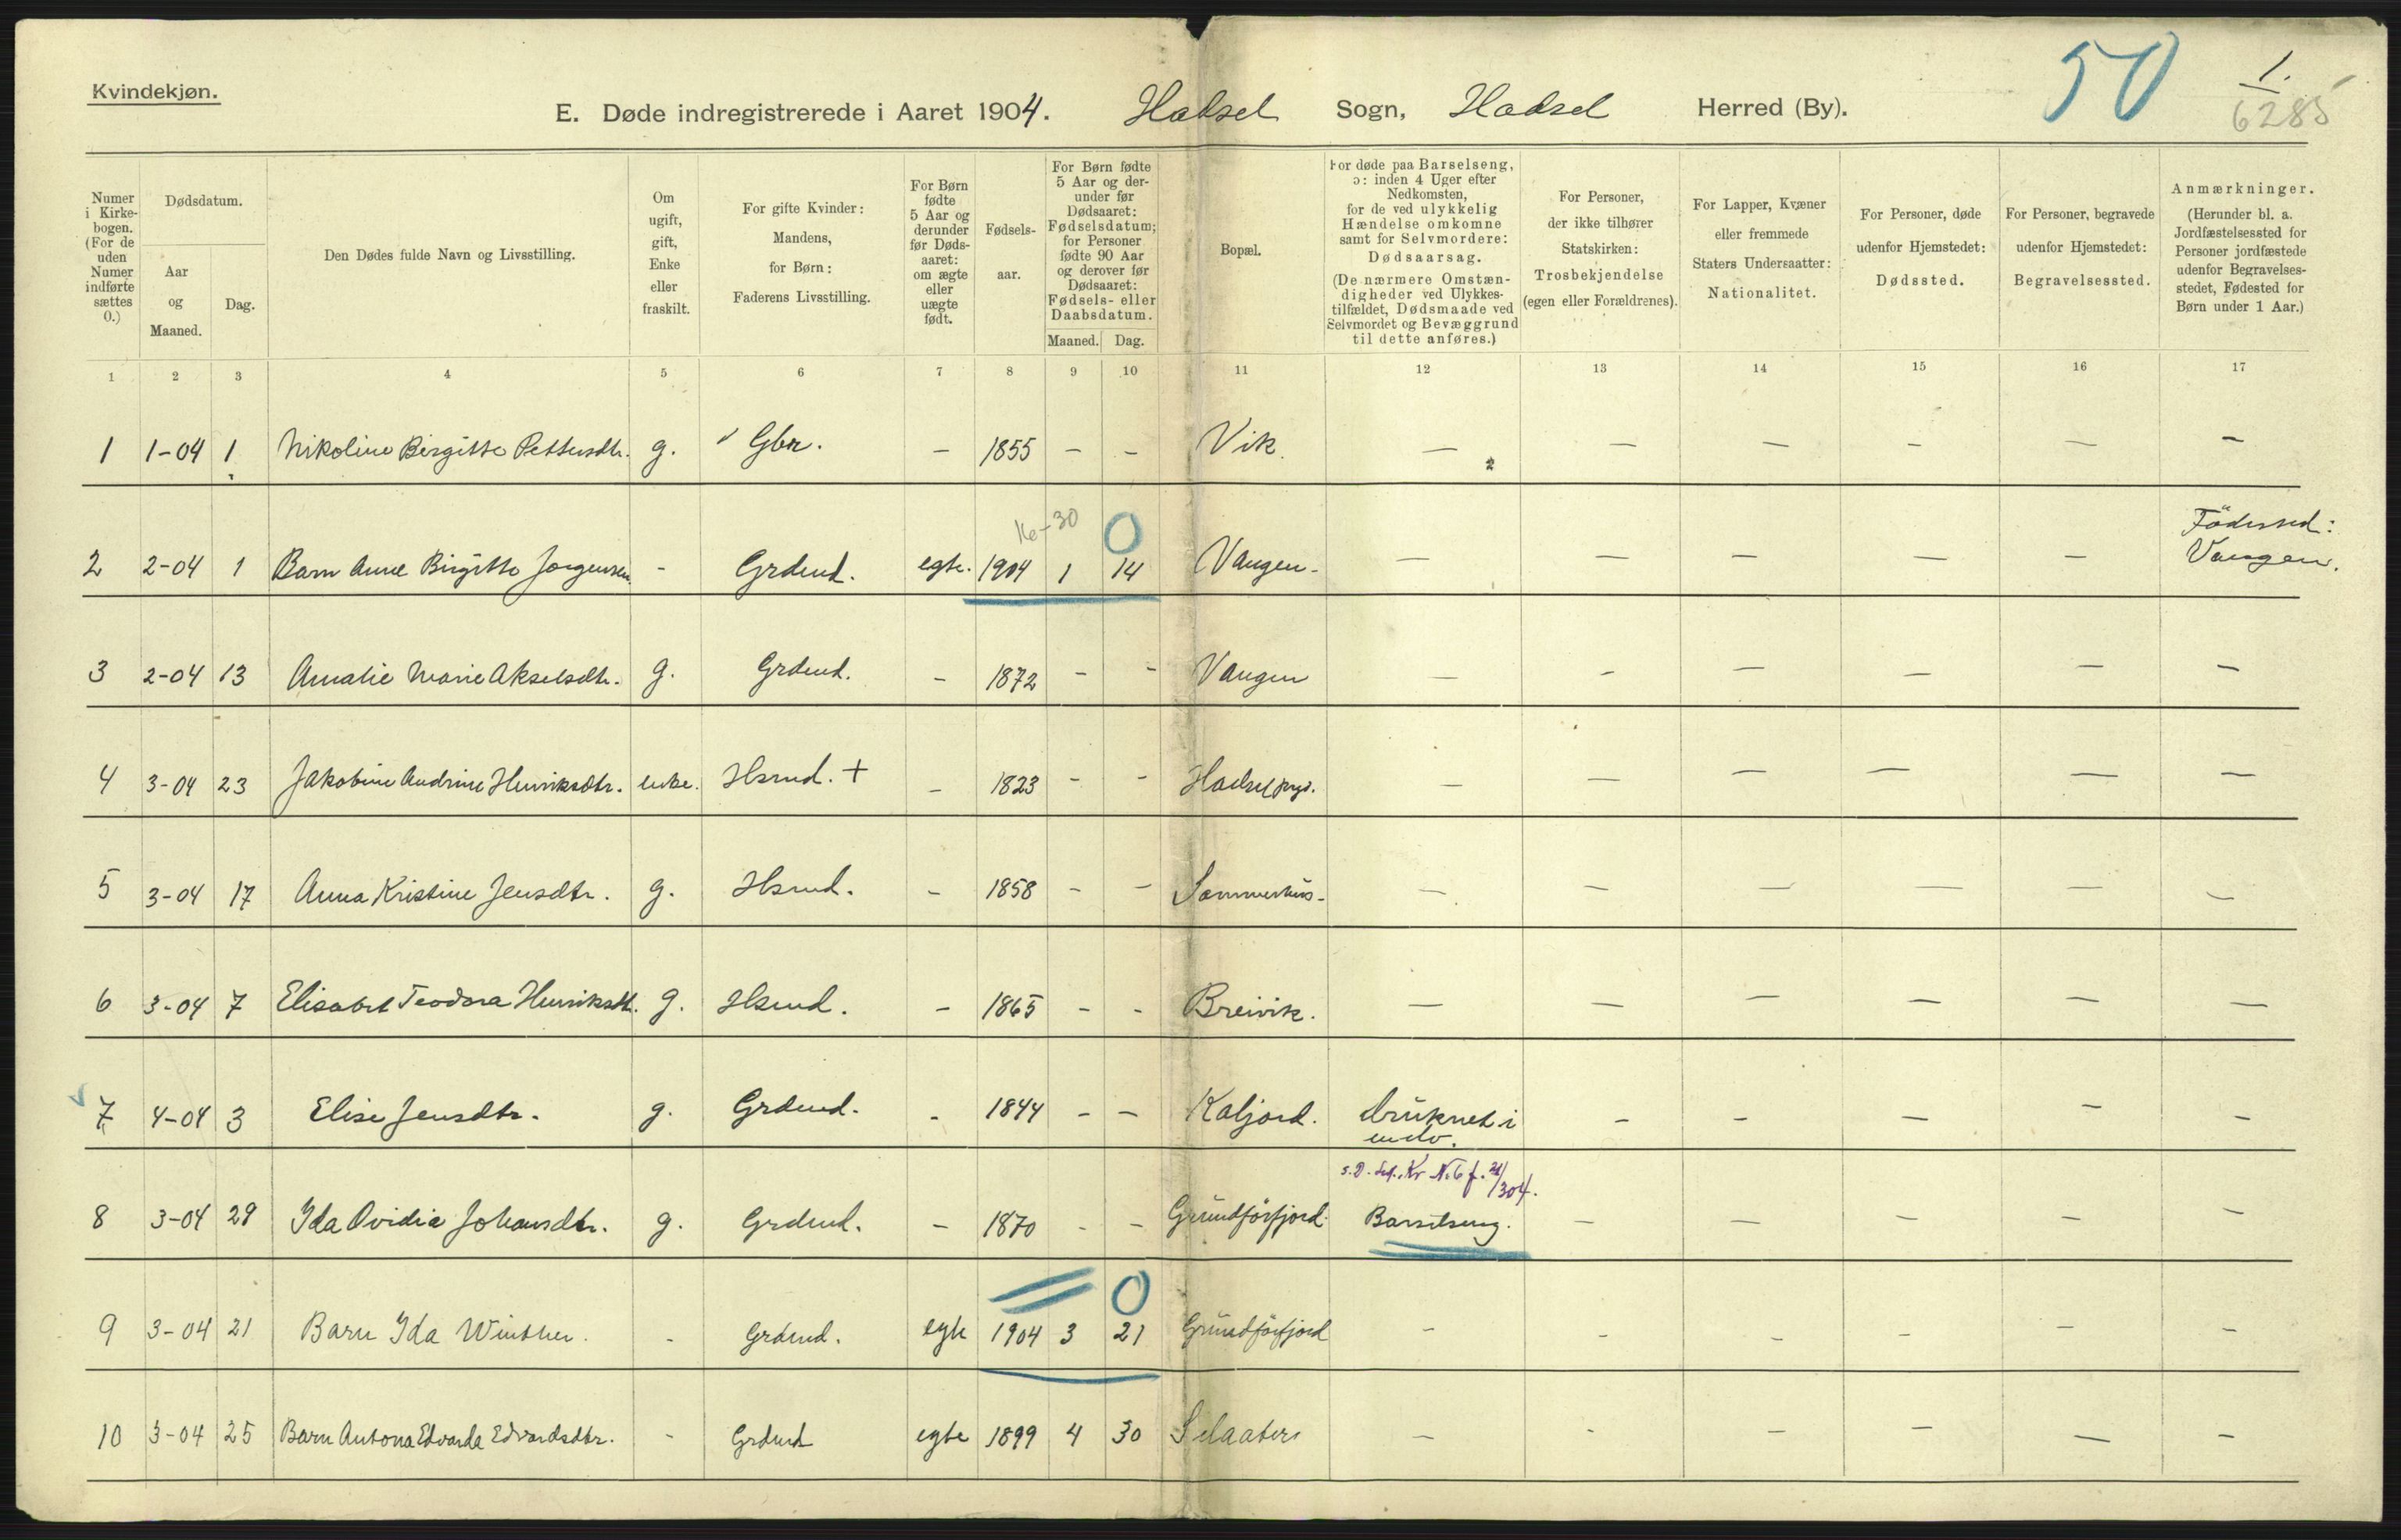 Kvindekjøn.
E. Døde indregistrerede i Aaret 1904. Hadsel Sogn, Hadsel Herred (By).
50
1.
6285
Numer i Kirkebogen. (For de uden Numer indførte sættes 0.)
Dødsdatum.
Aar og Maaned.
Dag.
Den Dødes fulde Navn og Livsstilling.
Om ugift, gift, Enke eller fraskilt.
For gifte Kvinder: Mandens, for Børn: Faderens Livsstilling.
For Børn fødte 5 Aar og derunder før Dødsaaret: om ægte eller uægte født.
Fødselsaar.
For Børn fødte 5 Aar og derunder før Dødsaaret: Fødselsdatum; for Personer fødte 90 Aar og derover før Dødsaaret: Fødsels- eller Daabsdatum.
Maaned. Dag.
Bopæl.
For døde paa Barselseng, ɔ: inden 4 Uger efter Nedkomsten, for de ved ulykkelig Hændelse omkomne samt for Selvmordere: Dødsaarsag.
(De nærmere Omstændigheder ved Ulykkestilfældet, Dødsmaade ved Selvmordet og Bevæggrund til dette anføres.)
For Personer, der ikke tilhører Statskirken: Trosbekjendelse (egen eller Forældrenes).
For Lapper, Kvæner eller fremmede Staters Undersaatter: Nationalitet.
For Personer, døde udenfor Hjemstedet: Dødssted.
For Personer, begravede udenfor Hjemstedet: Begravelsessted.
Anmærkninger. (Herunder bl. a. Jordfæstelsessted for Personer jordfæstede udenfor Begravelsesstedet, Fødested for Børn under 1 Aar.)
1 2 3 4 5 6 7 8 9 10 11 12 13 14 15 16 17
1 1-04 1 Nikoline Birgitte Pettersdtr. g. Gbr. - 1855 - - Vik. - - - - - -
16-30 0 Födested:
2 2-04 1 Barn Anne Birgitte Jørgensen - Grdmd. egte. 1904 1 14 Vangen - - - - - Vangen.
3 2-04 13 Amalie Marie Akselsdtr. g. Grdmd. - 1872 - - Vangen - - - - - -
4 3-04 23 Jakobine Andrine Henriksdtr. enke. Hsmd. + - 1823 - - Hadsel prgd. - - - - - -
5 3-04 17 Anna Kristine Jensdtr. g. Hsmd. - 1858 - - Sommerhus - - - - - -
6 3-04 7 Elisabet Teodora Henriksdtr. g. Hsmd. - 1865 - - Breivik. - - - - - -
7 4-04 3 Elise Jensdtr. g. Grdmd. - 1844 - - Kaljord. druknet i - - - - -
s.D. Kr N. 6 f. 21/304.
8 3-04 29 Ida Ovidia Johansdtr. g. Grdmd. - 1870 - - Grundförfjord. Barselseng. - - - - -
0
9 3-04 21 Barn Ida Winther. - Grdmd. egte 1904 3 21 Grundförfjord - - - - - -
10 3-04 25 Barn Antona Edvarda Edvardsdtr. - Grdmd egte 1899 4 30 - - - - - -